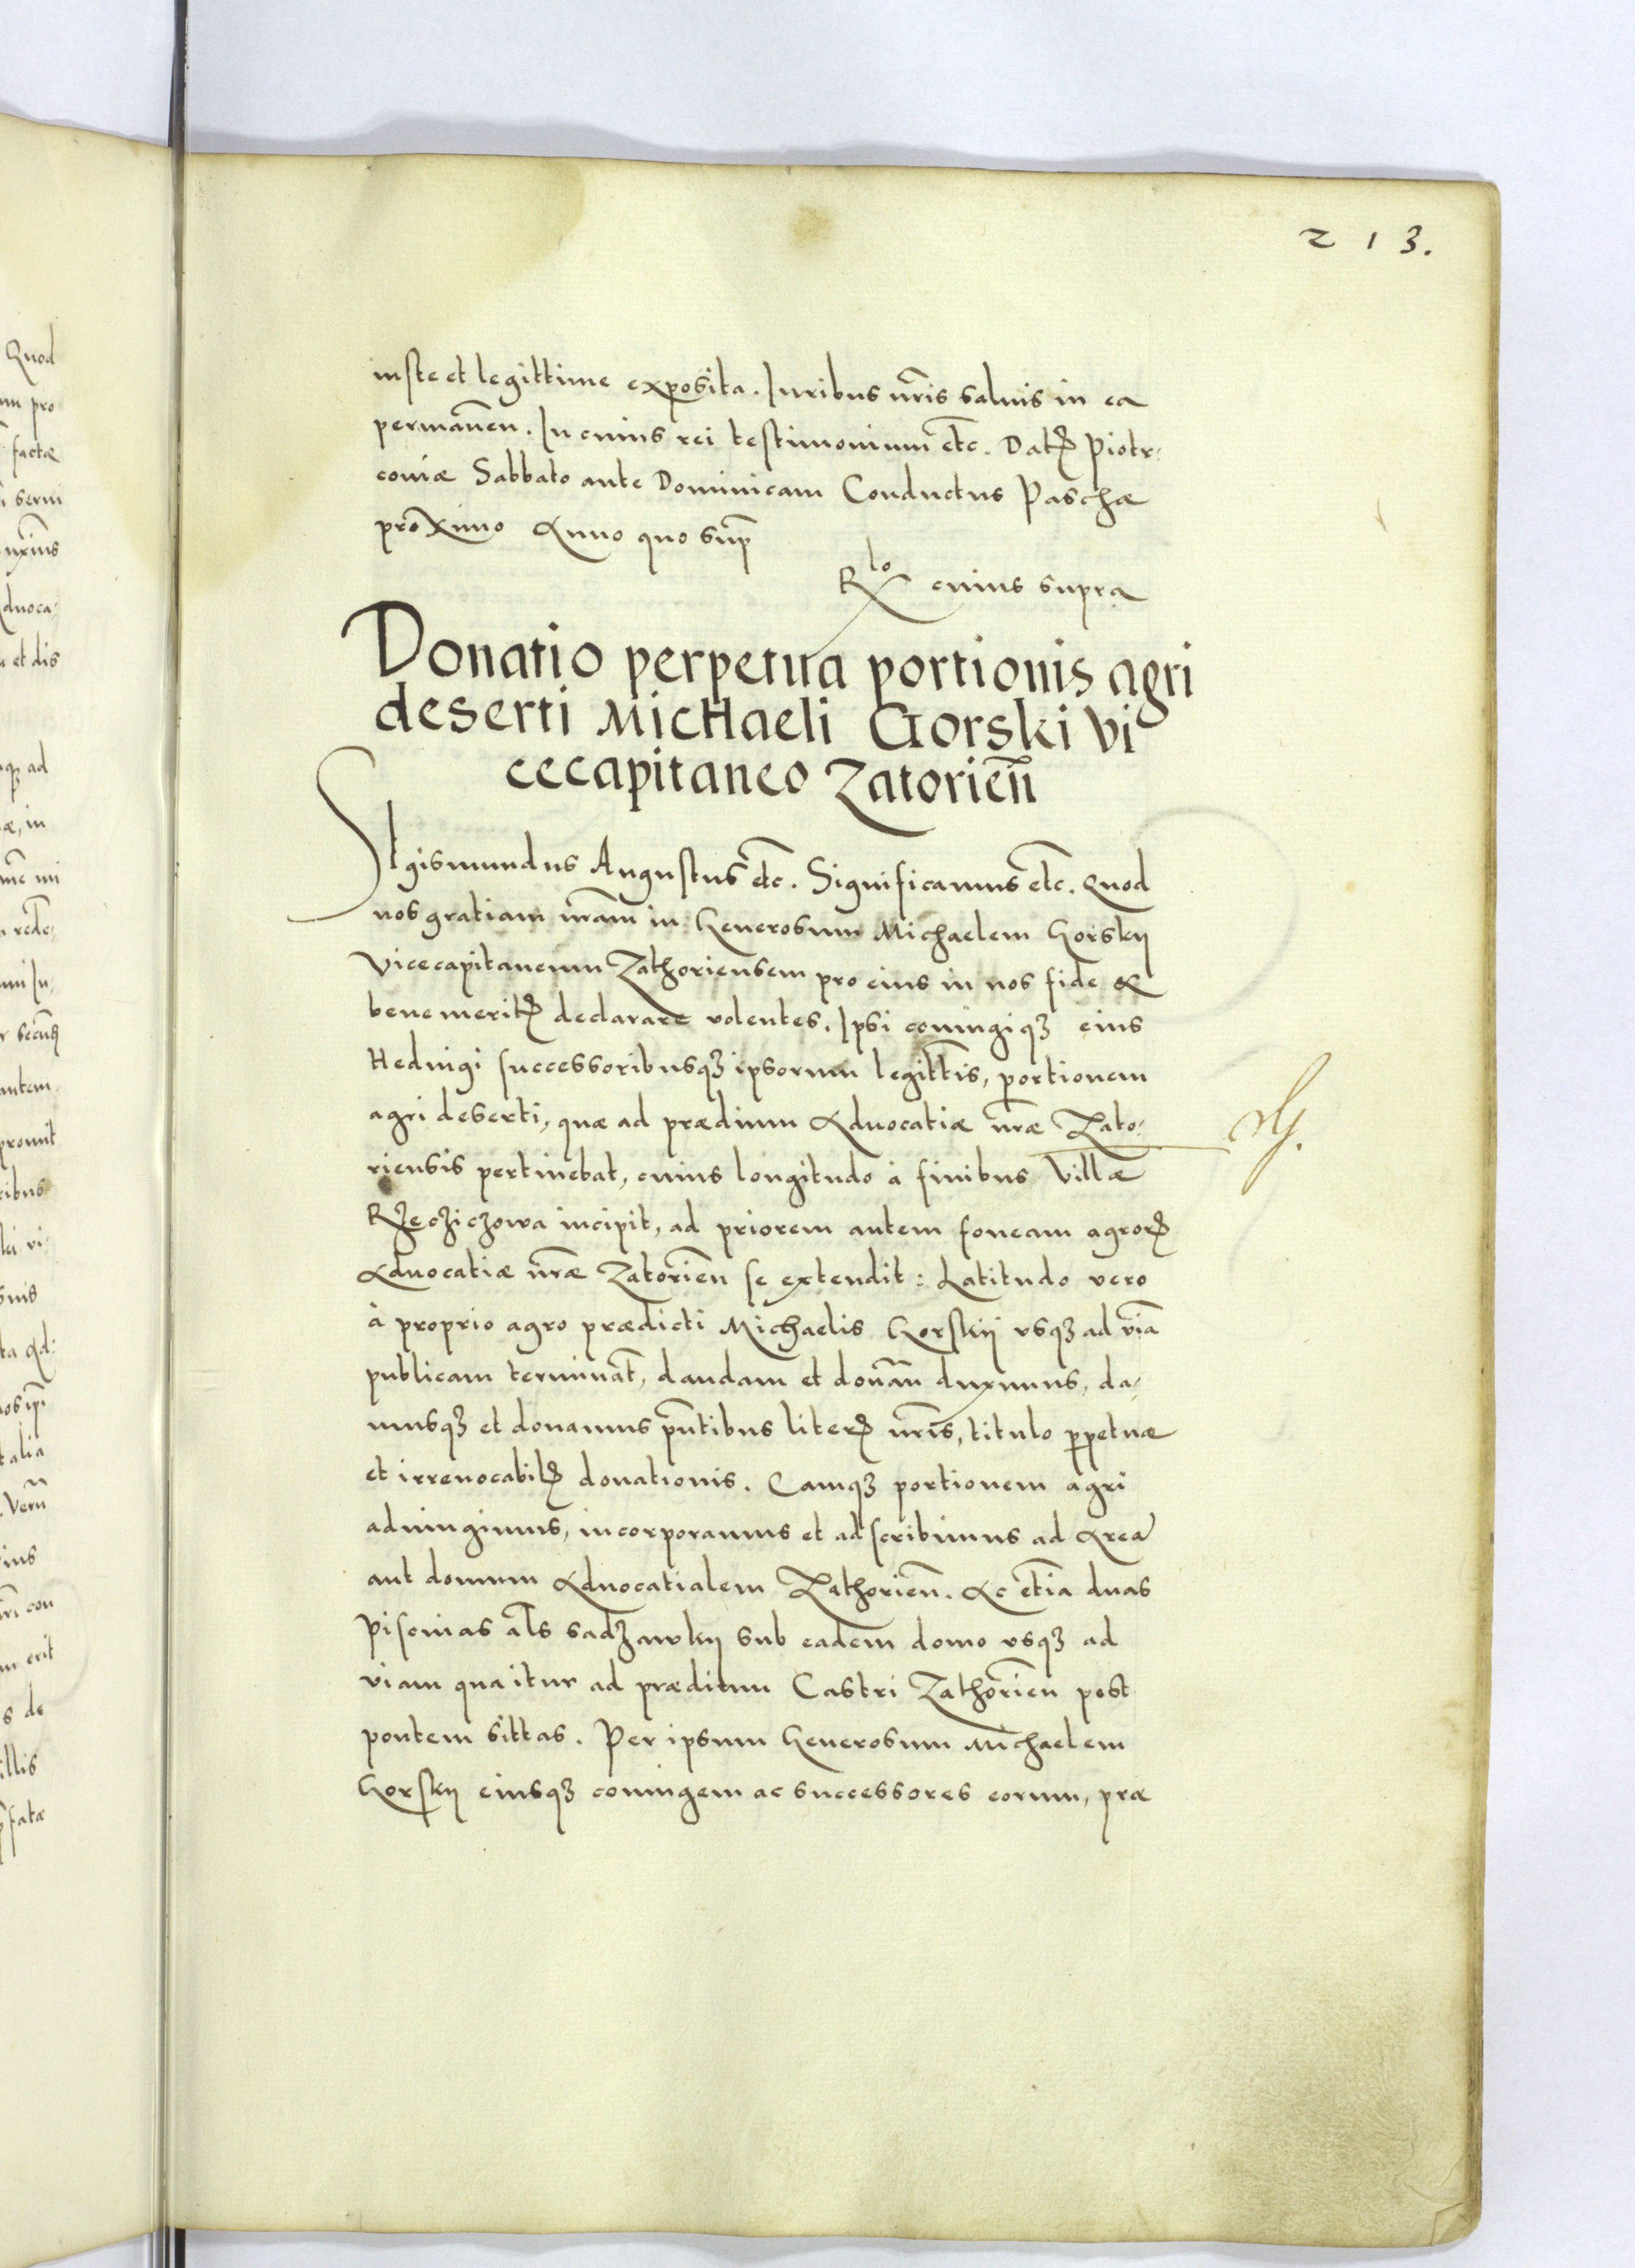 213.
iuste et legittime exposita. Iuribus nr̃is saluis in ea
permañen. In cuius rei testimonium etc̃. Datꝭ Piotr-
couiæ Sabbato ante Dominicam Conductus Paschæ
proximo Anno quo sup̃
Rlo cuius supra
Donatio perpetua portionis agri
deserti Michaeli Gorski Vi
cecapitaneo Zatorien̄
Sigismundus Augustus etc̃. Significamus etc̃. Quod
nos gratiam nr̃am in Generosum Michaelem Gorskij
Vicecapitaneum Zathoriensem pro eius in nos fide &
benemeritꝭ declarare volentes. Ipsi coniugiqꝫ eius
Heduigi successoribusqꝫ ipsorum legitt̃is, portionem
agri deserti, quæ ad prædium Aduocatiæ nr̃æ Zato-
riensis pertinebat, cuius longitudo à finibus Villæ
Rzecziczowa incipit, ad priorem autem foueam agrorꝭ
Aduocatiæ nr̃æ Zatorien̄ se extendit: Latitudo vero
à proprio agro prædicti Michaelis Gorskij vsqꝫ ad viã
publicam terminat̃, dandam et donãn duximus, da-
musqꝫ et donamus p̃ntibus literꝭ nr̃is, titulo ꝑpetuæ
et irreuocabilꝭ donationis. Eamqꝫ portionem agri
adiungimus, incorporamus et adscribimus ad Areã
aut domum Aduocatialem Zathorien̄. Ac etiã duas
Piscinas al̃s sadzawkij sub eadem domo vsqꝫ ad
viam qua itur ad prædium Castri Zathorien̄ post
pontem sittas. Per ipsum Generosum Michaelem
Gorskij eiusqꝫ coniugem ac successores eorum, præ